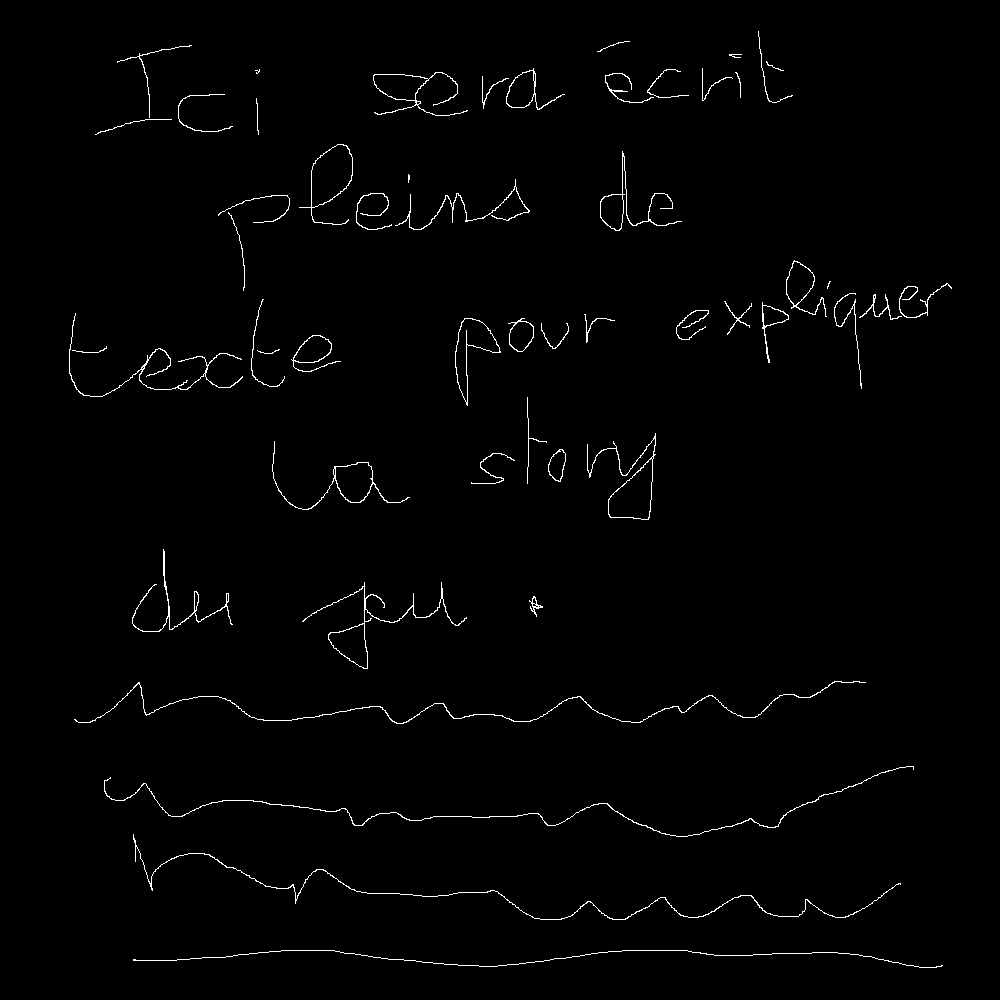 Ici sera écrit
pleins de
texte pour expliquer
la story
du jeu.